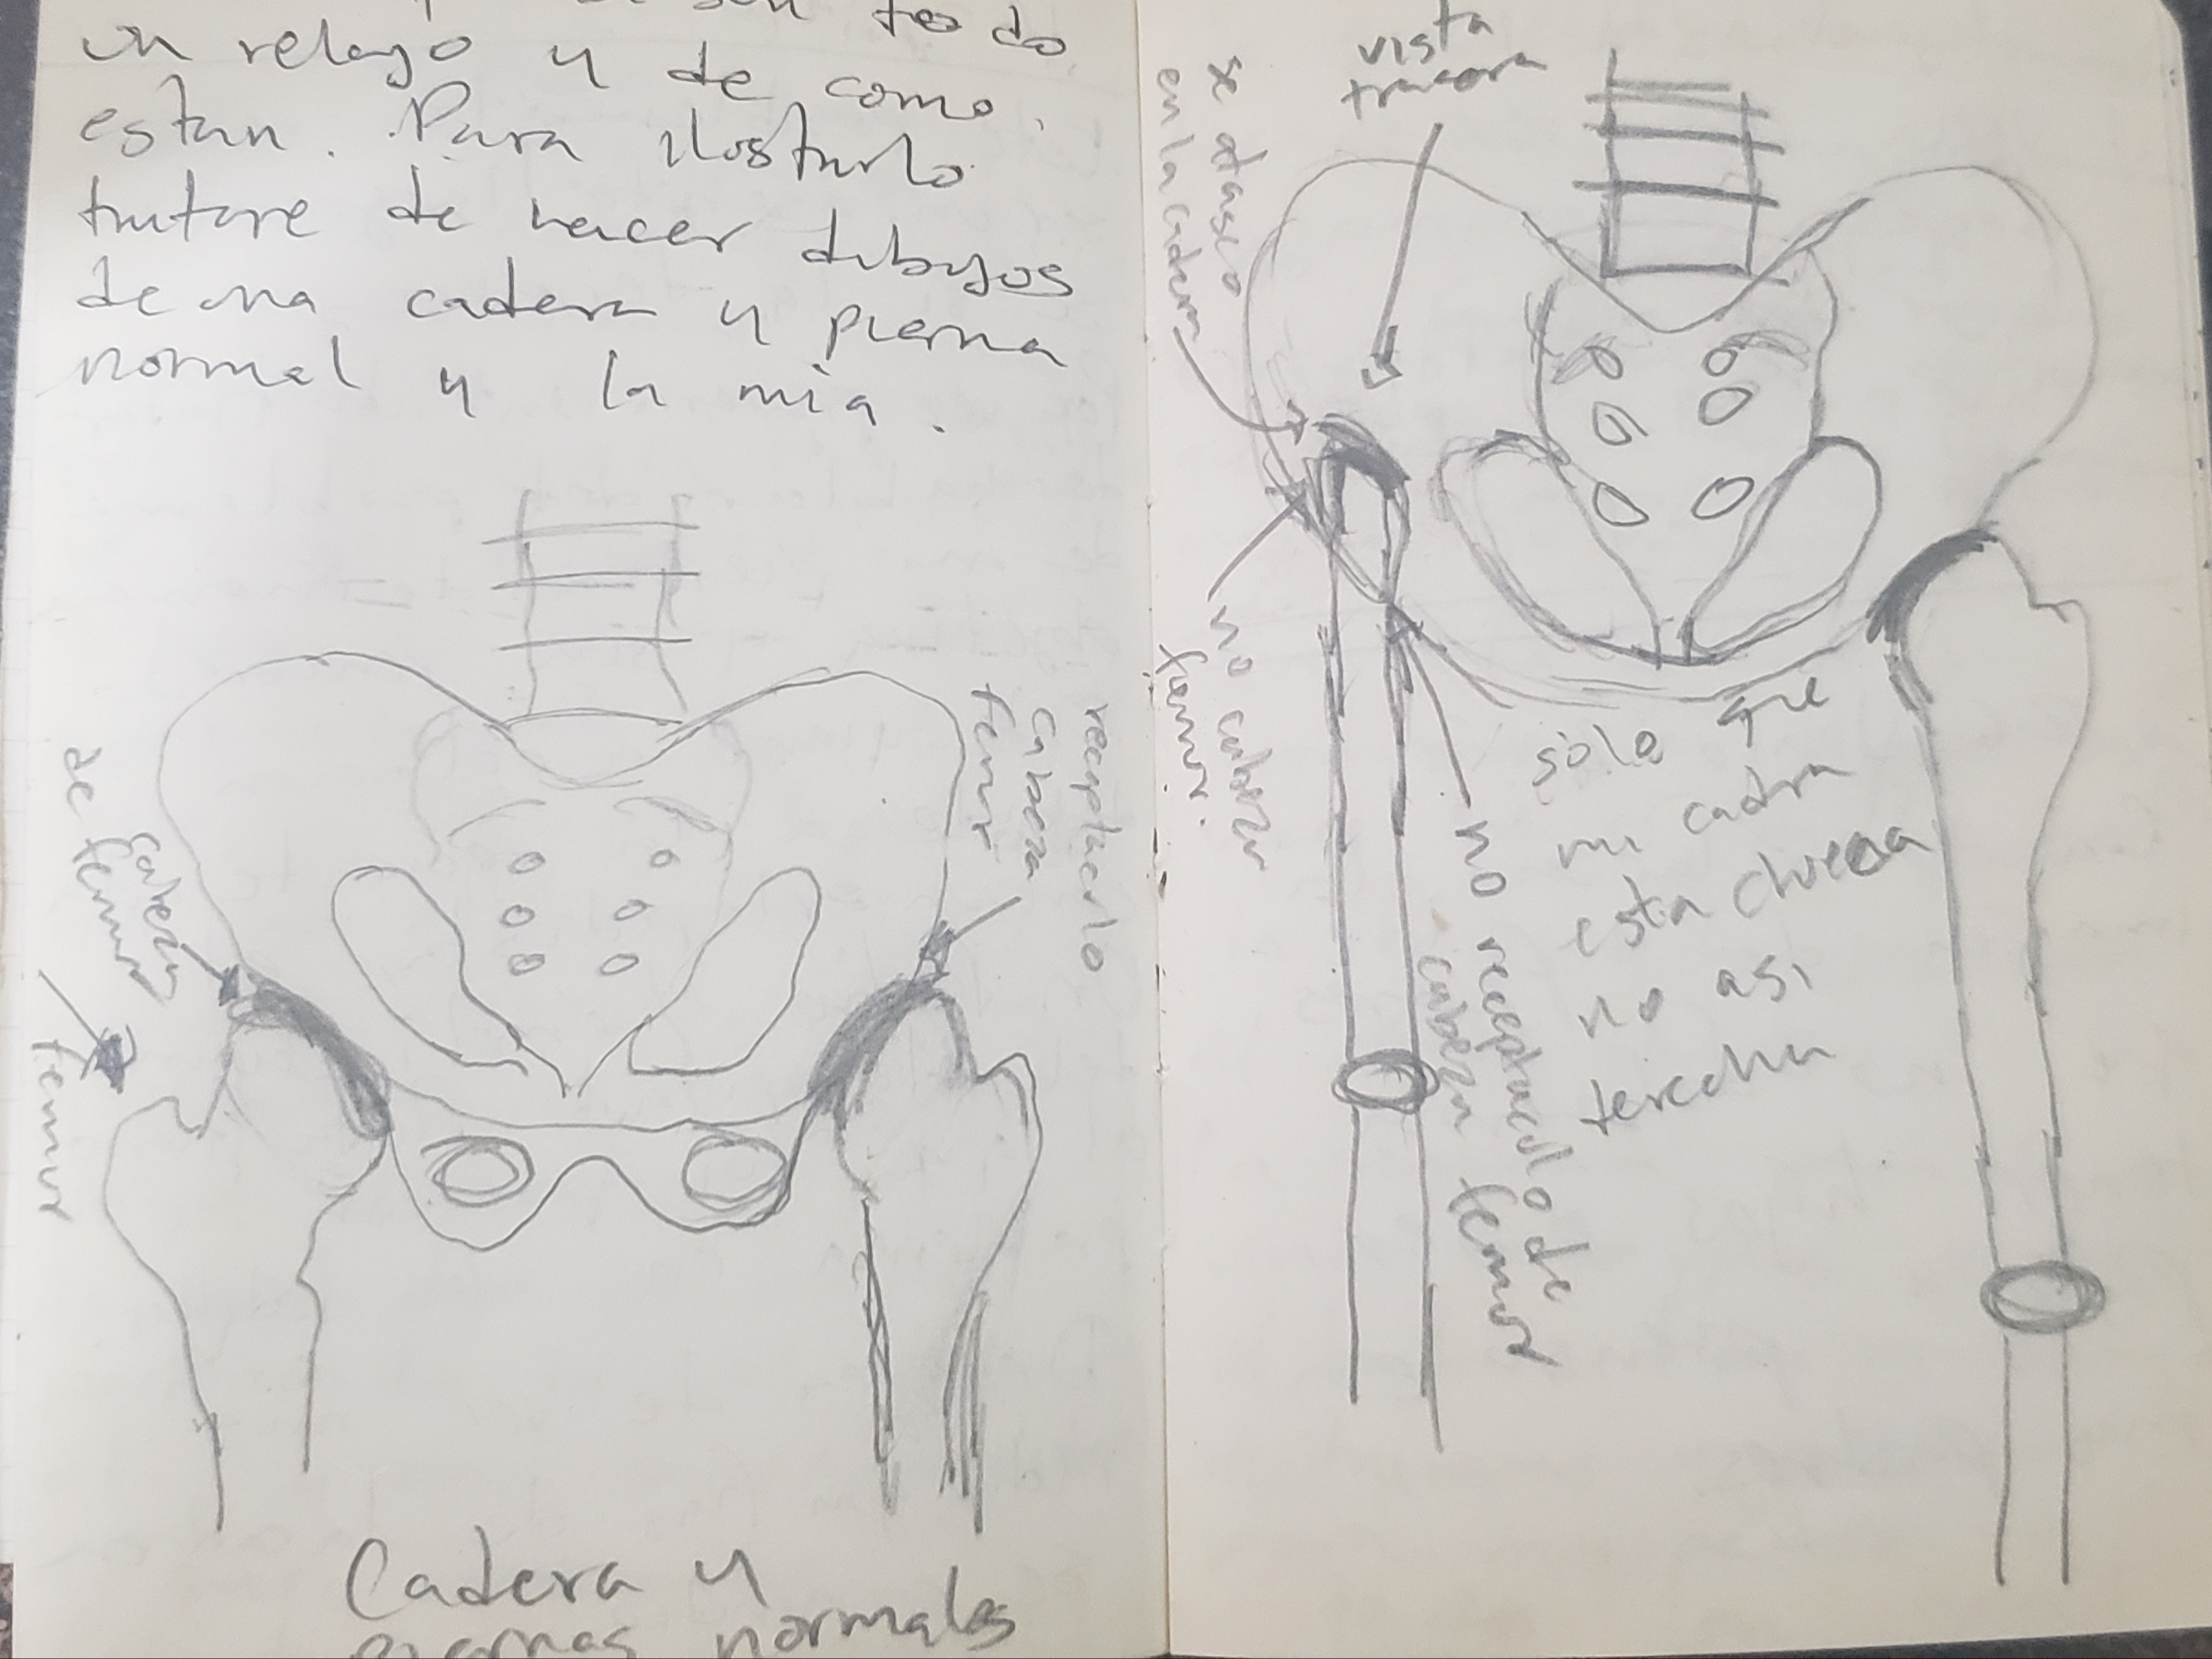 un relajo y de como
estan. Para ilosturlo
tratare de hacer dibujos
de una cadera y pierna
normal y la mia.
receptaculo
cabeza
femur
cabeza
de femur
femur
Cadera y
piernas normales
vista
trasera
se atasco
en la cadera
no cabeza
femur.
no receptaculo de
cabeza femur
sólo que
mi cadra
esta chueca
no asi